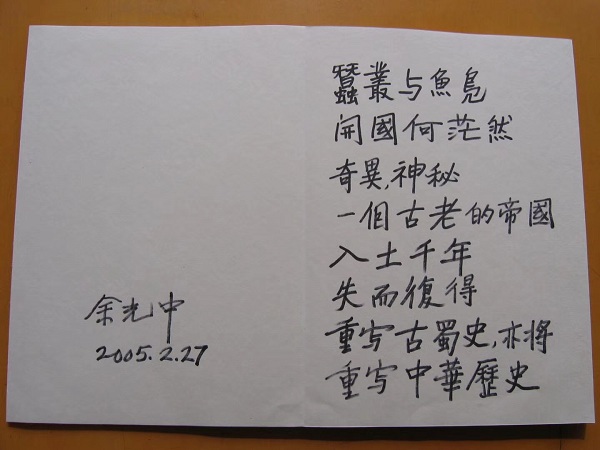 蠶叢与魚鳧
開國何茫然
奇異,神秘
一個古老的帝國
入土千年
失而復得
重写古蜀史,亦將
重写中華歷史
余光中
2005.2.27